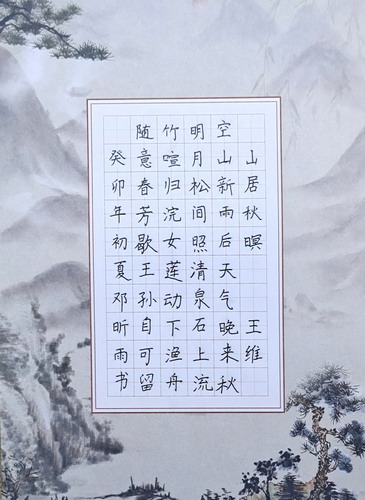 山居秋暝 王维
空山新雨后天气晚来秋
明月松间照清泉石上流
竹喧归浣女莲动下渔舟
随意春芳歇王孙自可留
癸卯年初夏邓昕雨书